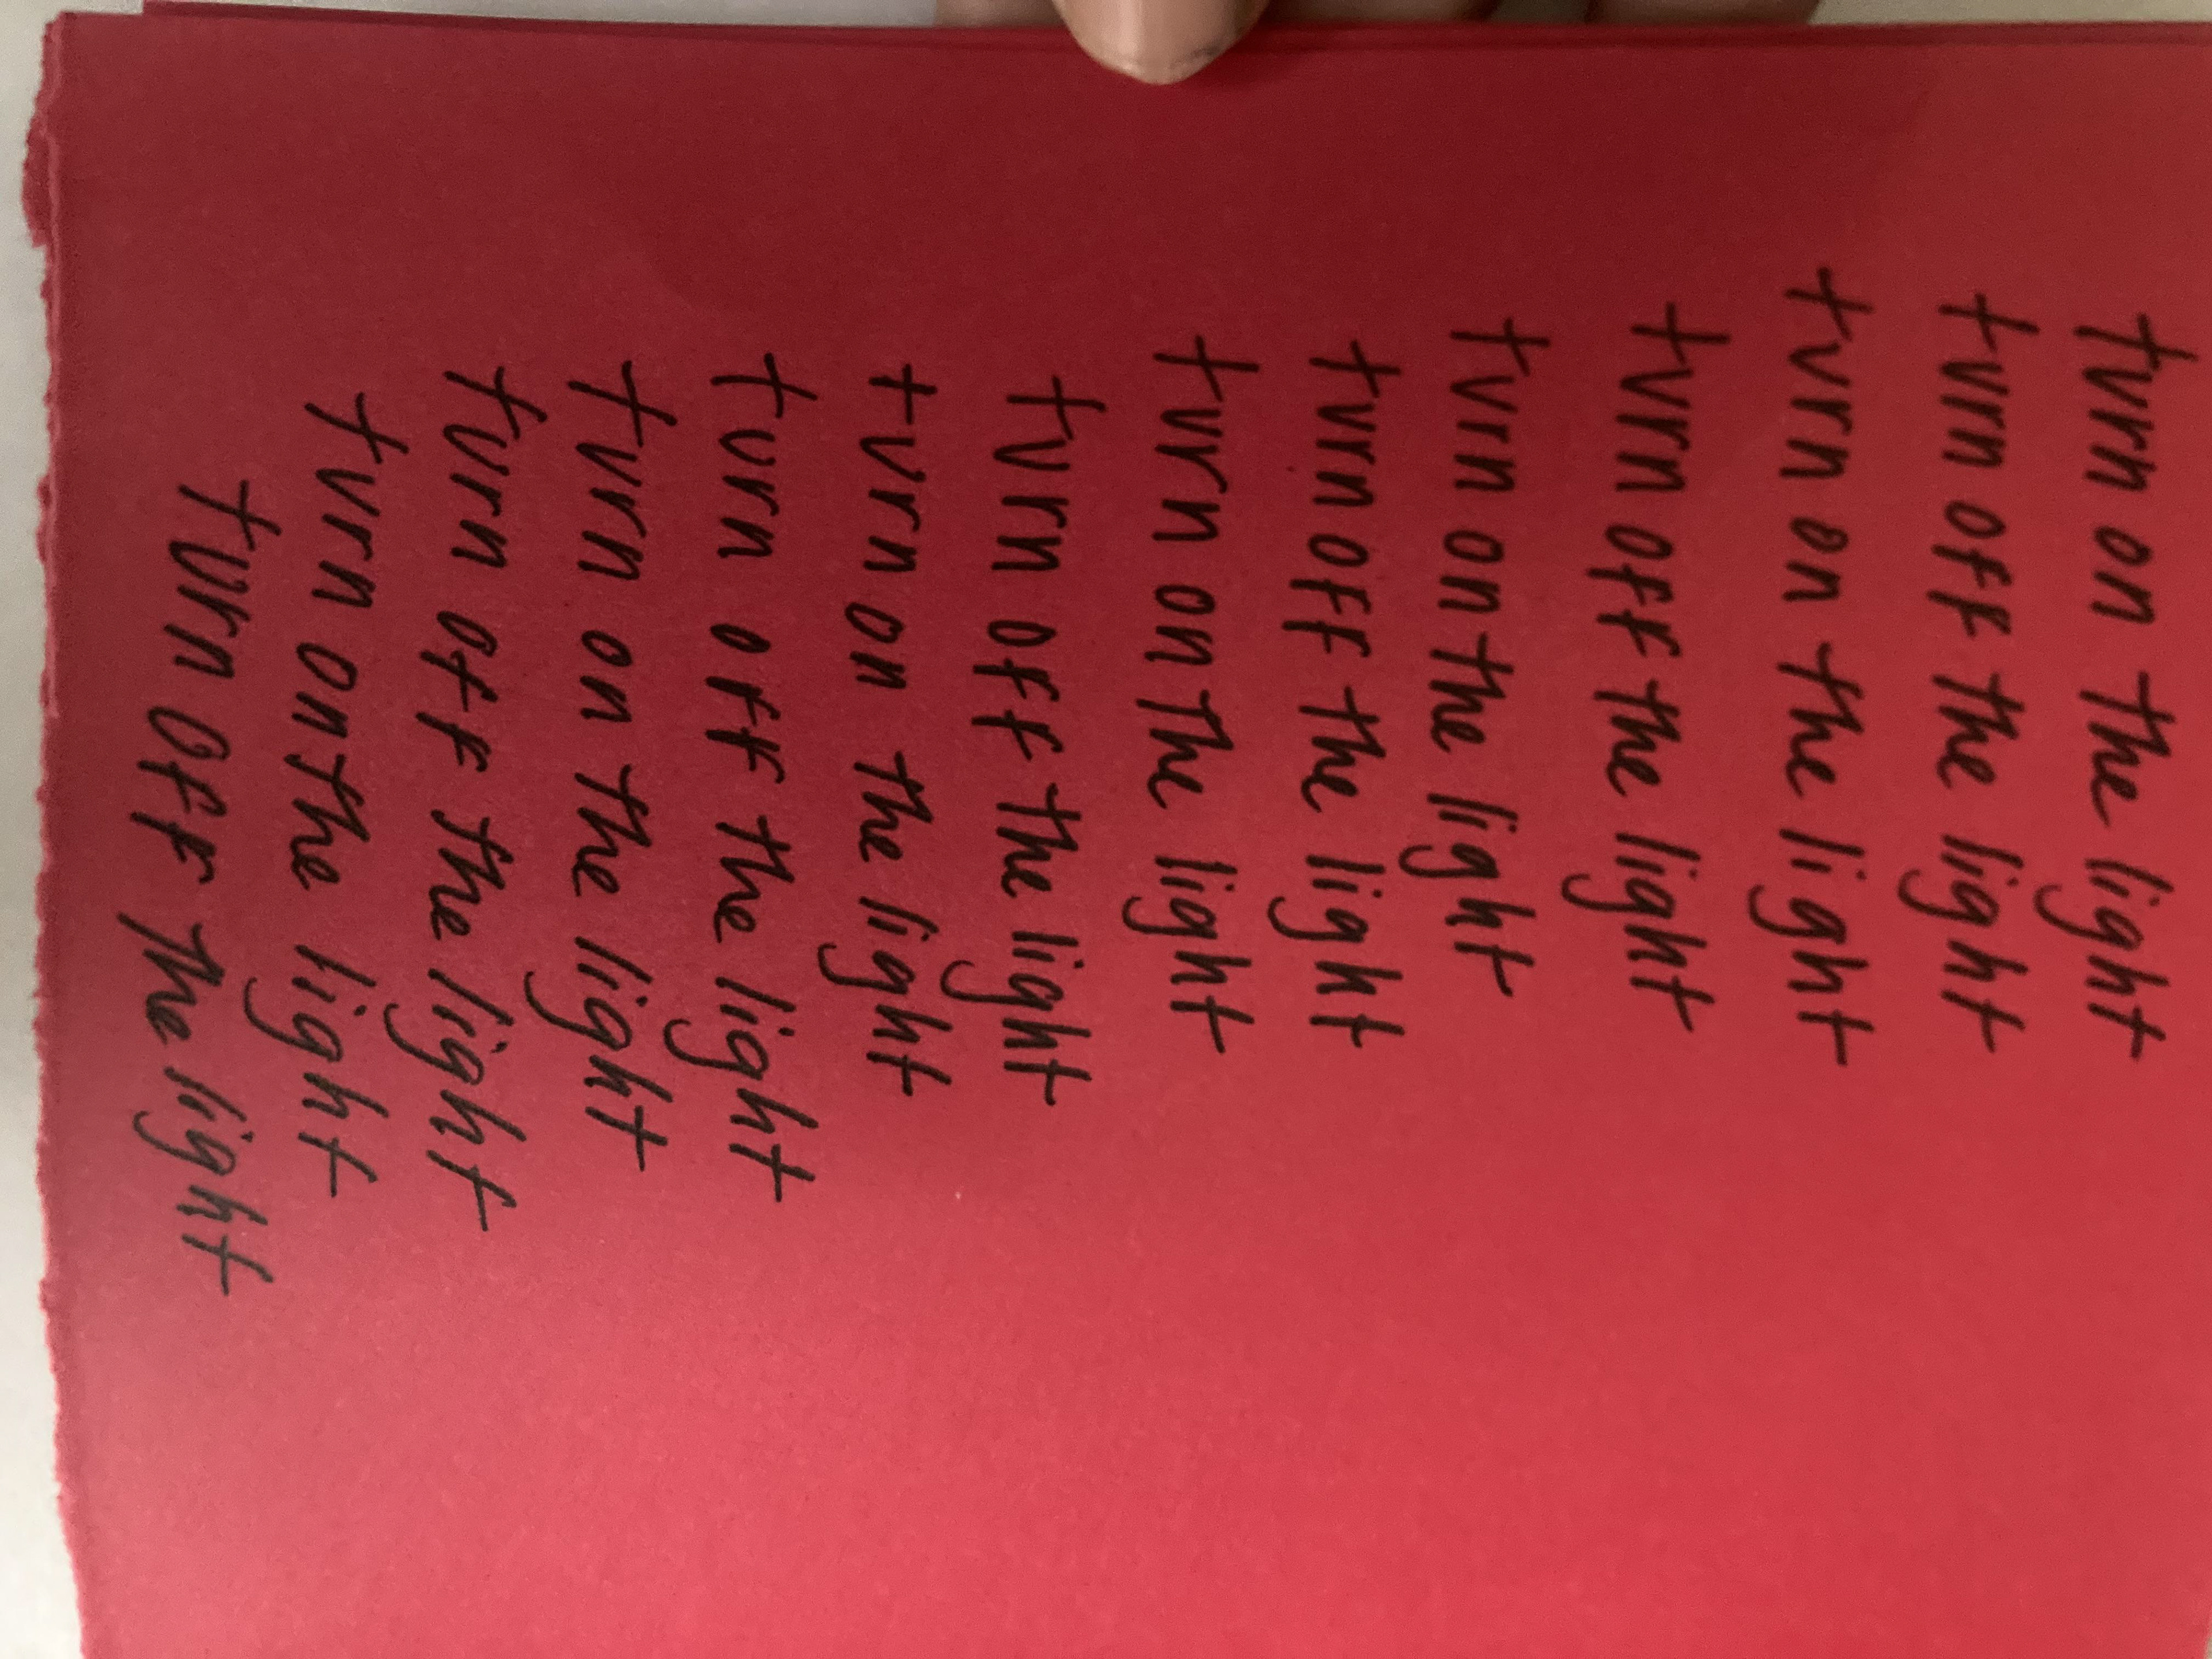 turn on the light
turn off the light
turn on the light
turn off the light
turn on the light
turn off the light
turn on the light
turn off the light
turn on the light
turn off the light
turn on the light
turn off the light
turn on the light
turn off the light